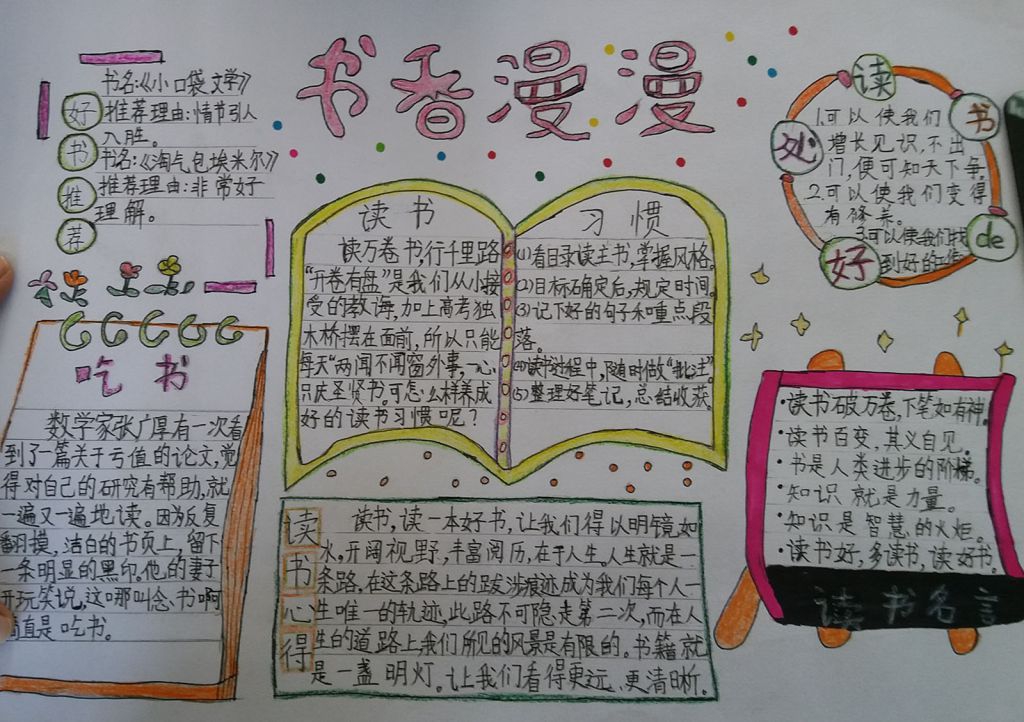 书香漫漫
好书推荐
书名:《小口袋文学》
推荐理由:情节引人
入胜。
书名:《淘气包埃米尔》
推荐理由:非常好
理解。
读书 习惯
读万卷书,行千里路
“开卷有盘”是我们从小接
受的教诲,加上高考独
木桥摆在面前,所以只能
每天“两闻不闻窗外事,一心
只庆圣贤书。可怎么样养成
好的读书习惯呢?
(1)看目录读主书,掌握风格。
(2)目标确定后,规定时间。
(3)记下好的句子和重点段
落。
(4)读书过程中,随时做“批注”
(5)整理好笔记,总结收获。
读书de好处
1.可以使我们
增长见识,不出
门,便可知天下争
2.可以使我们变得
有修养。
3.可以使我们找
到好的工作
吃书
数学家张广厚有一次看
到了一篇关于亏值的论文,觉
得对自己的研究有帮助,就
一遍又一遍地读。因为反复
翻摸,洁白的书页上,留下
一条明显的黑印。他的妻子
开玩笑说,这哪叫念书啊
直是吃书。
读书心得
读书,读一本好书,让我们得以明镜如
水。开阔视野,丰富阅历,在于人生。人生就是一
条路,在这条路上的跋涉痕迹成为我们每个人一
生唯一的轨迹,此路不可隐走第二次,而在人
生的道路上我们所见的风景是有限的。书籍就
是一盏明灯。让我们看得更远、更清晰。
·读书破万卷,下笔如有神。
·读书百变,其义自见。
·书是人类进步的阶梯。
·知识就是力量。
·知识是智慧的火炬。
·读书好,多读书,读好书。
读书名言